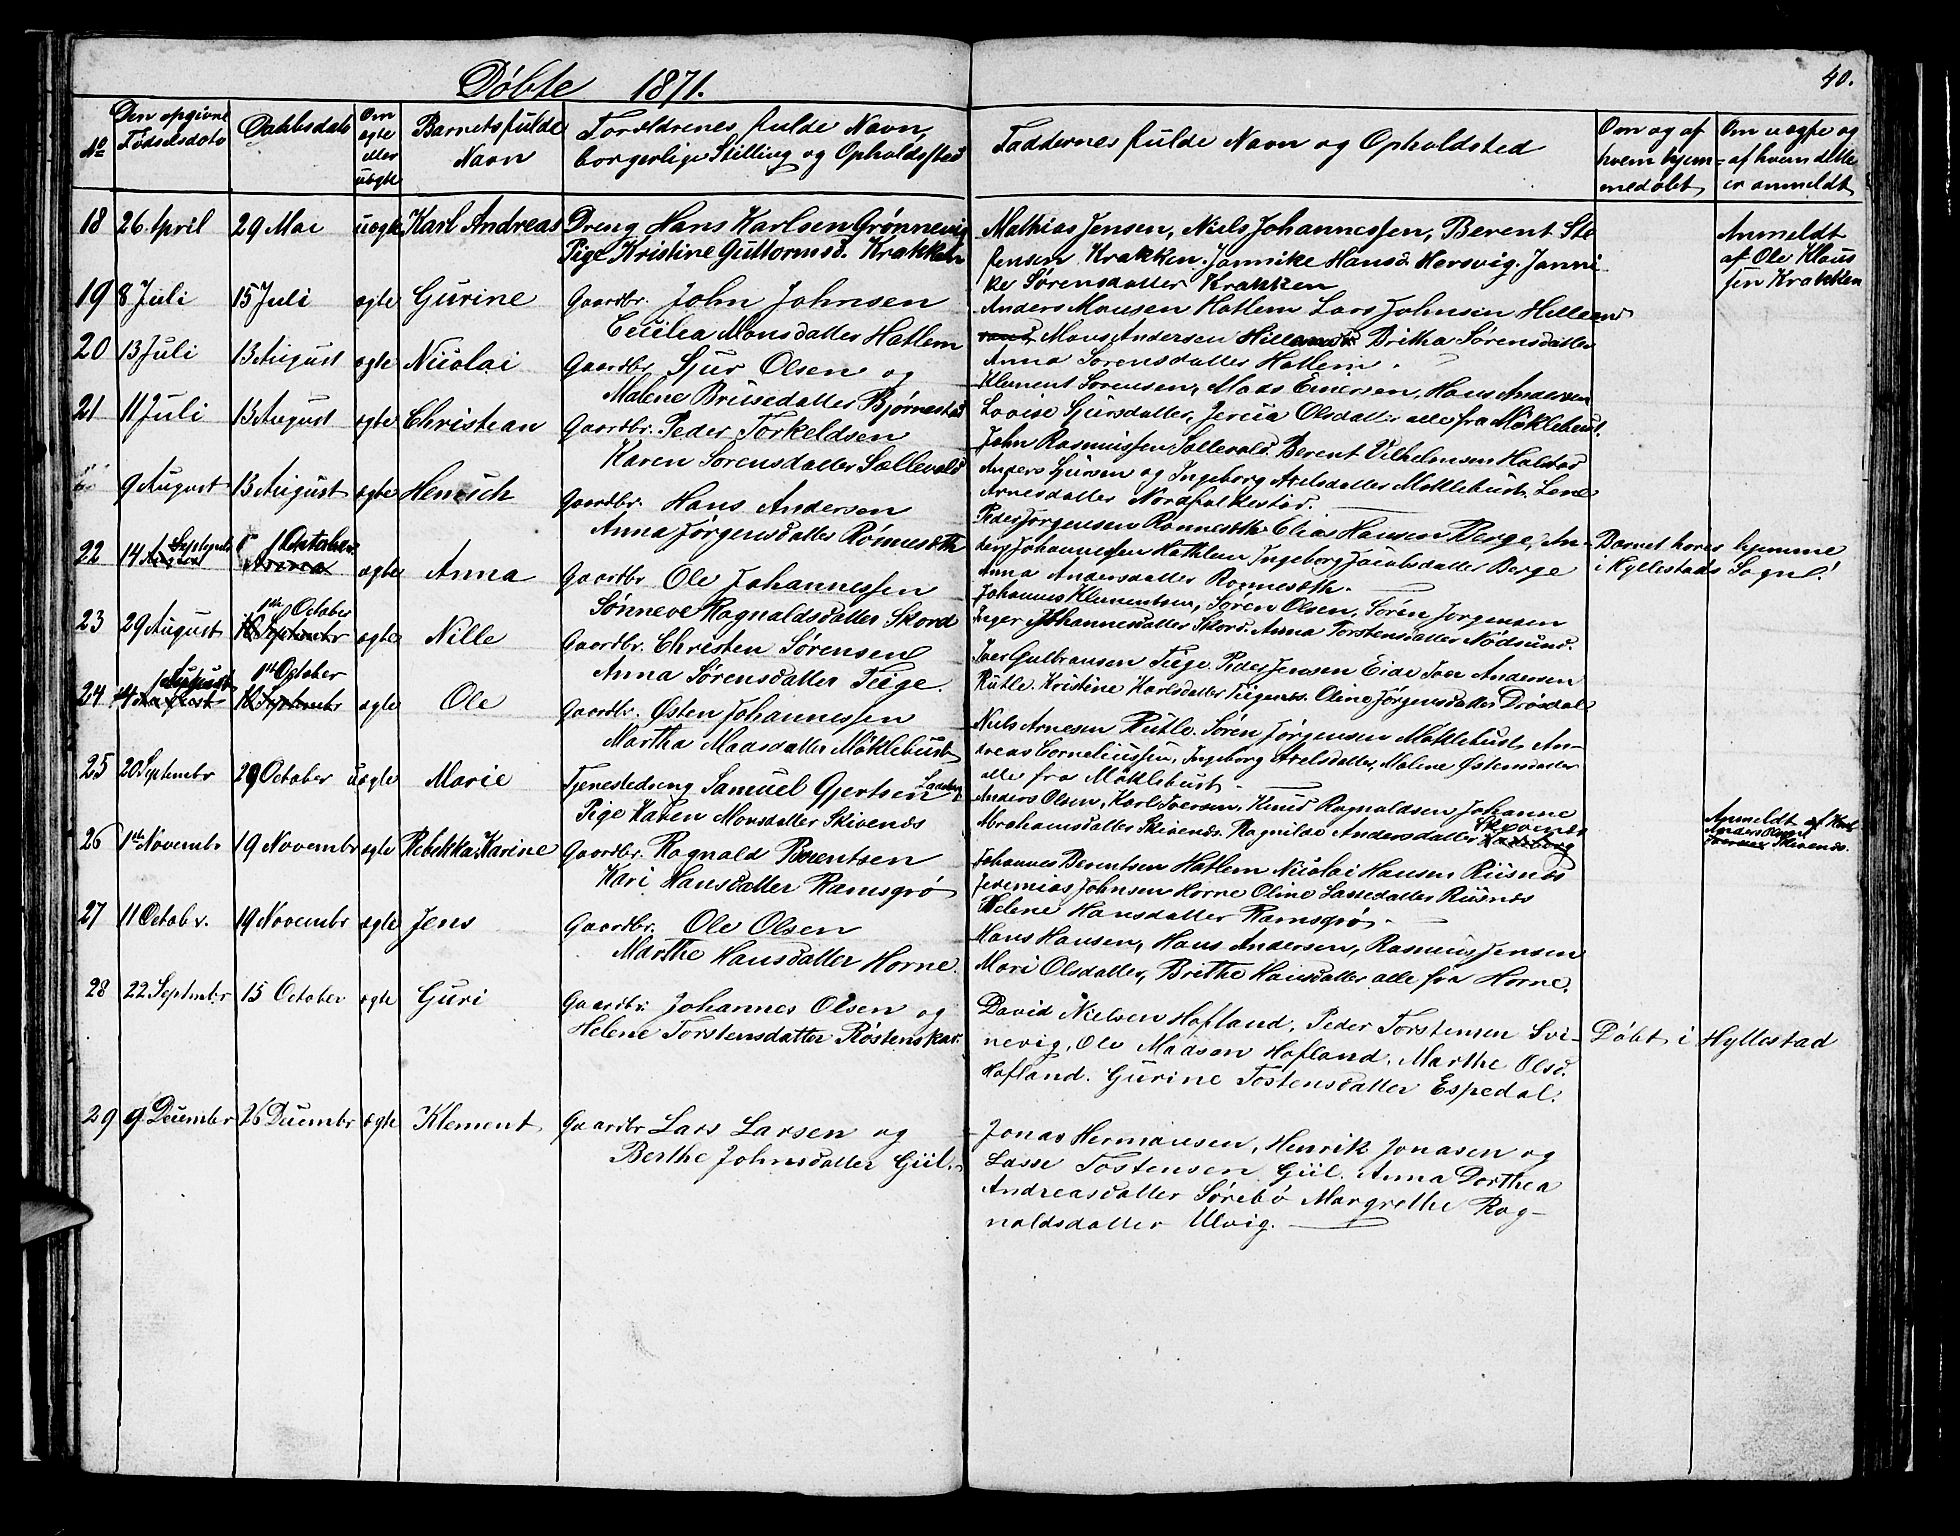 Døbte 1871.
40.
No
Den opgivne Fødselsdato
Daabsdato
Om ægte eller uægte
Barnets fulde Navn
Forældrenes fulde Navn, borgerlige Stilling og Opholdssted
Faddernes fulde Navn og Opholdsted
Om og af hvem hjemmedøbt
Om uægte og af hvem dette er anmeldt
18 26 April 29 Mai uægte Karl Andreas Dreng Hans Karlsen Grønnevig
Pige Kristine Guttormsd. Krakken
Mathias Jensen, Niels Johannessen, Berent Ste
fensen Krakken. Jannike Hansd. Hersvig. Janni
ke Sørensdatter Krakken
Anmeldt
af Ole Klaus
sen Krakken
19 8 Juli 15 Juli ægte Gurine Gaardbr. John Johnsen
Cecilea Monsdatter Hatlem
Anders Monsen Hatlem Lars Johnsen Hilleand
Mons Andersen Hilland Britha Sørensdatter
Anna Sørensdatter Hatlem.
20 13 Juli 13 August ægte Nicolai Gaardbr. Sjur Olsen og
Malene Brusedatter Bjørnestad
Klement Sørensen, Mads Einersen, Hans Andersen
Lovise Sjursdatter, Jericia Olsdatter alle fra Møklebust.
21 11 Juli 13 August ægte Christian Gaardbr. Peder Torkeldsen
Karen Sørensdatter Sællevold
John Rasmussen Sollevold. Berent Vilhelmsen Holstad
Anders Sjursen og Ingeborg Axelsdatter Møklebust, Lene
Arnesdatter Nordfolkestad.
9 August 13 August ægte Henrich Gaardbr. Hans Andersen
Anna Jørgensdatter Rønnesæth
Peder Jørgensen Rønnesæth Elias Hansen Berge, An-
ders Johannessen Hathlem Ingeborg Jacobsdatter Berge
Anna Andersdatter Rønnesæth.
Barnet høres hjemme
i Hyllestads Sogn!
22 14 August September 1 October ægte Anna Gaardbr. Ole Johannessen
Sønneve Ragnaldsdatter Skord
Johannes Klementsen, Søren Olsen, Søren Jørgensen
Inger Johannesdatter Skord. Anna Torstensdatter Nødsund.
23 29 August 10 September 1ste October ægte Nille Gaardbr. Christen Sørensen
Anna Sørensdatter Tiege.
Iver Gulbransen Tiege. Peder Jensen Eide Iver Andersen
Rutle. Kristine Karlsdatter Teigenes. Oline Jørgensdatter Drøsdal
24 14 August 10 September 1ste October ægte Ole Gaardbr. Østen Johannessen
Martha Madsdatter Møklebust
Niels Arnesen Rutle. Søren Jørgensen Møklebust, An-
dreas Corneliussen, Ingeborg Axelsdatter, Malene Østensdatter
alle fra Møklebust.
25 20 September 29 October uægte Marie Tjenestedreng Samuel Gjertsen
Pige Karen Monsdatter Skivenes
Anders Olsen, Karl Iversen, Knud Ragnaldsen Johanne
Abrahamsdatter Skivenes. Ragnilde Andersdatter Skivenes
Anmeldt af Karl
Anders Olsen
Iversen Skivenes.
26 1ste November 19 November ægte Rebekka Karine Gaardbr. Ragnald Berentsen
Kari Hansdatter Ramsgrø
Johannes Berentsen Hatlem Nicolai Hansen Riisnes
Jeremias Johnsen Horne Oline Lassedatter Riisnes
Helene Hansdatter Ramsgrø.
27 11 October. 19 November ægte Jens Gaardbr. Ole Olsen
Marthe Hansdatter Horne.
Hans Hansen, Hans Andersen, Rasmus Jensen
Mari Olsdatter, Brithe Hansdatter alle fra Horne.
28 22 September 15 October ægte Guri Gaardbr. Johannes Olsen og
Helene Torstensdatter Røstenskar.
David Nielsen Hofland, Peder Torstensen Svi-
nevig, Ole Madsen Hofland, Marthe Olsd.
Hofland. Gurine Tostensdatter Espedal.
Døbt i Hyllestad
29 9 December 26 December ægte Klement Gaardbr Lars Larsen og
Berthe Johnsdatter Giil.
Jonas Hermansen, Henrik Jonasen og
Lasse Tostensen Giil. Anna Dorthea
Andreasdatter Sørebø Margrethe Rag-
naldsdatter Ulvig.